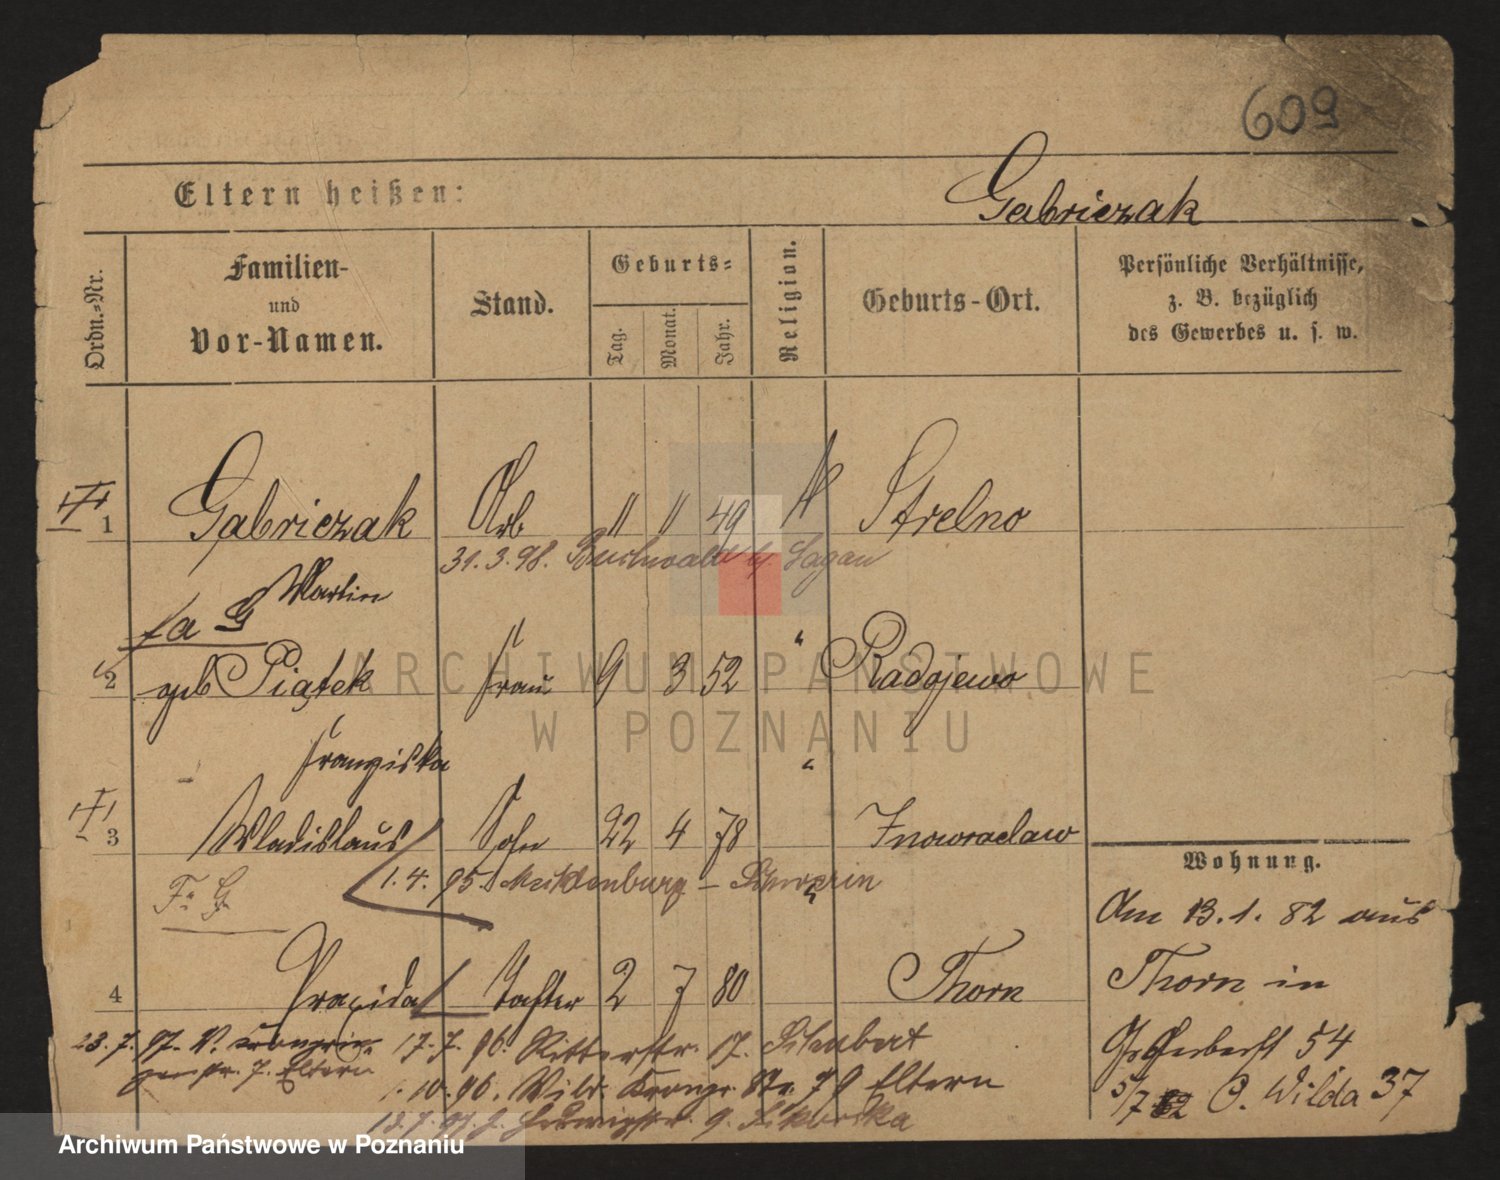 609
Eltern heißen:
Gabriczak
Ordn.-Nr.
Familien-
und
Vor-Namen.
Stand.
Geburts-
Tag.
Monat.
Jahr.
Religion.
Geburts-Ort.
Persönliche Verhältnisse,
z. B. bezüglich
des Gewerbes u. s. w.
1 Gabriczak Arb " " 49 K Strelno
31.3.98. Buchwald b/ Sagan
Martin
fa G
2 geb Piątek Frau 9 3 52 " Radojewo
Franziska "
3 Wladislaus Sohn 22 4 78 Inowraclaw
Fa G. 1.4.95. Mecklenburg - Schwerin
4 Praxida Tochter 2 7 80 Thorn
23.7.97. V. Kronprin-
zenstr. 7. Eltern
17.7.96. Ritterstr. 17. Schubert
1.10.96. Wild. Kronpr. Str. 79 Eltern
13.7.97.
Wohnung.
Am 13.1.82 aus
Thorn in
54
5/7 82 O. Wilda 37
ARCHIWUM PAŃSTWOWE
W POZNANIU
Archiwum Państwowe w Poznaniu